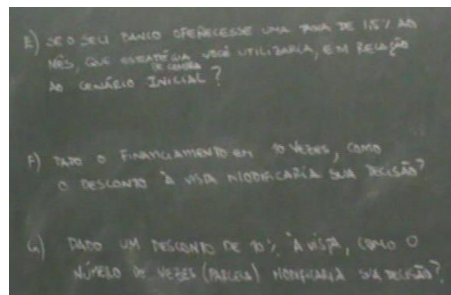 E) SE O SEU BANCO OFERECESSE UMA TAXA DE 1.5% AO
MÊS, QUE ESTRATÉGIA DE COMPRA VOCÊ UTILIZARIA, EM RELAÇÃO
AO CENÁRIO INICIAL?
F) DADO O FINANCIAMENTO EM 10 VEZES, COMO
O DESCONTO À VISTA MODIFICARIA SUA DECISÃO?
G) DADO UM DESCONTO DE 10% À VISTA, COMO O
NÚMERO DE VEZES (PARCELA) MODIFICARIA SUA DECISÃO?